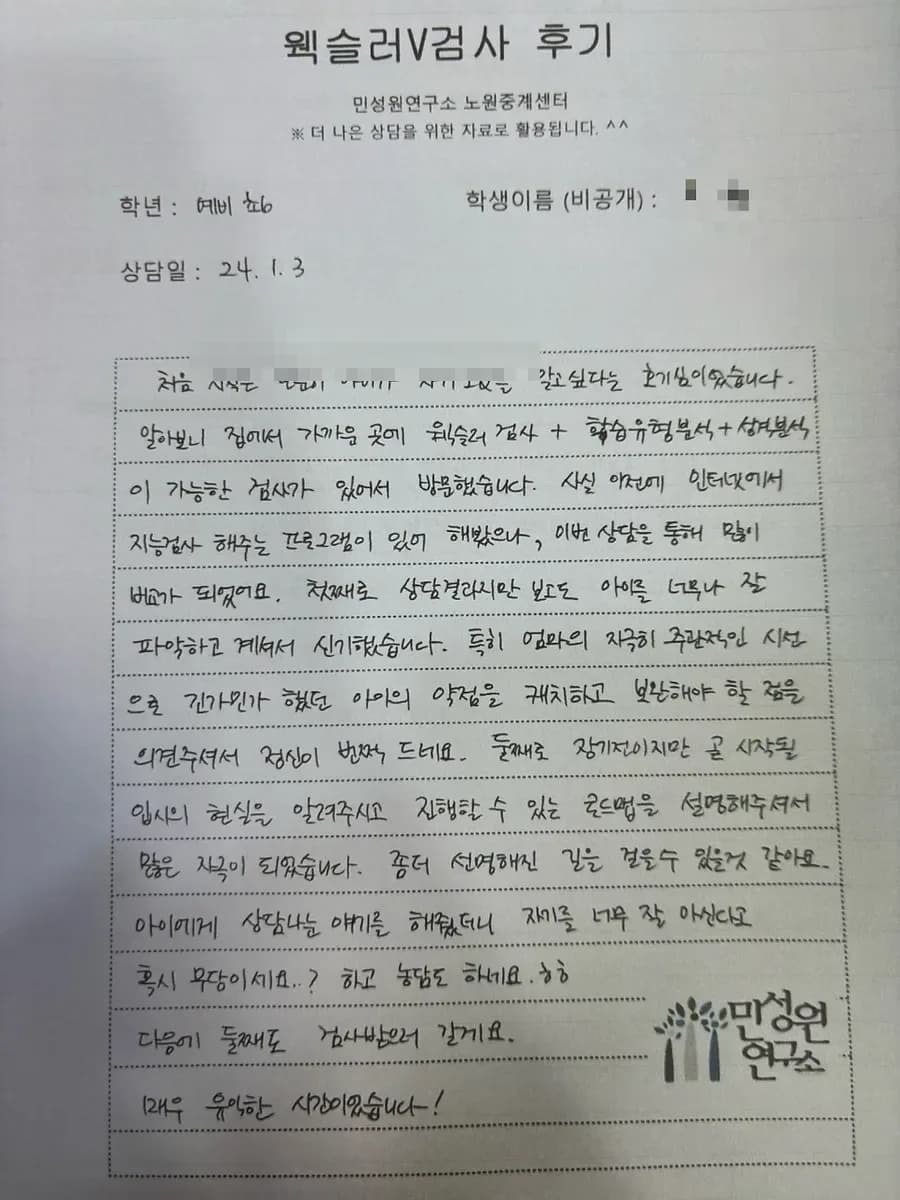 웩슬러V검사 후기
민성원연구소 노원중계센터
※ 더 나은 상담을 위한 자료로 활용됩니다. ^^
학년 : 예비 초6
학생이름 (비공개) :
상담일 : 24. 1. 3
처음 알고싶다는 호기심이었습니다.
알아보니 집에서 가까운 곳에 웩슬러 검사 + 학습유형분석 + 성격분석
이 가능한 검사가 있어서 방문했습니다. 사실 이전에 인터넷에서
지능검사 해주는 프로그램이 있어 해봤으나, 이번 상담을 통해 많이
비교가 되었어요. 첫째로 상담결과지만 보고도 아이를 너무나 잘
파악하고 계셔서 신기했습니다. 특히 엄마의 지극히 주관적인 시선
으로 긴가민가 했던 아이의 약점을 캐치하고 보완해야 할 점을
의견주셔서 정신이 번쩍 드네요. 둘째로 장기전이지만 곧 시작될
입시의 현실을 알려주시고 진행할 수 있는 로드맵을 설명해주셔서
많은 자극이 되었습니다. 좀더 선명해진 길을 걸을수 있을것 같아요.
아이에게 상담나눈 얘기를 해줬더니 자기를 너무 잘 아신다고
혹시 무당이세요..? 하고 농담도 하네요.ㅎㅎ
다음에 둘째도 검사받으러 갈게요.
매우 유익한 시간이었습니다!
민성원
연구소